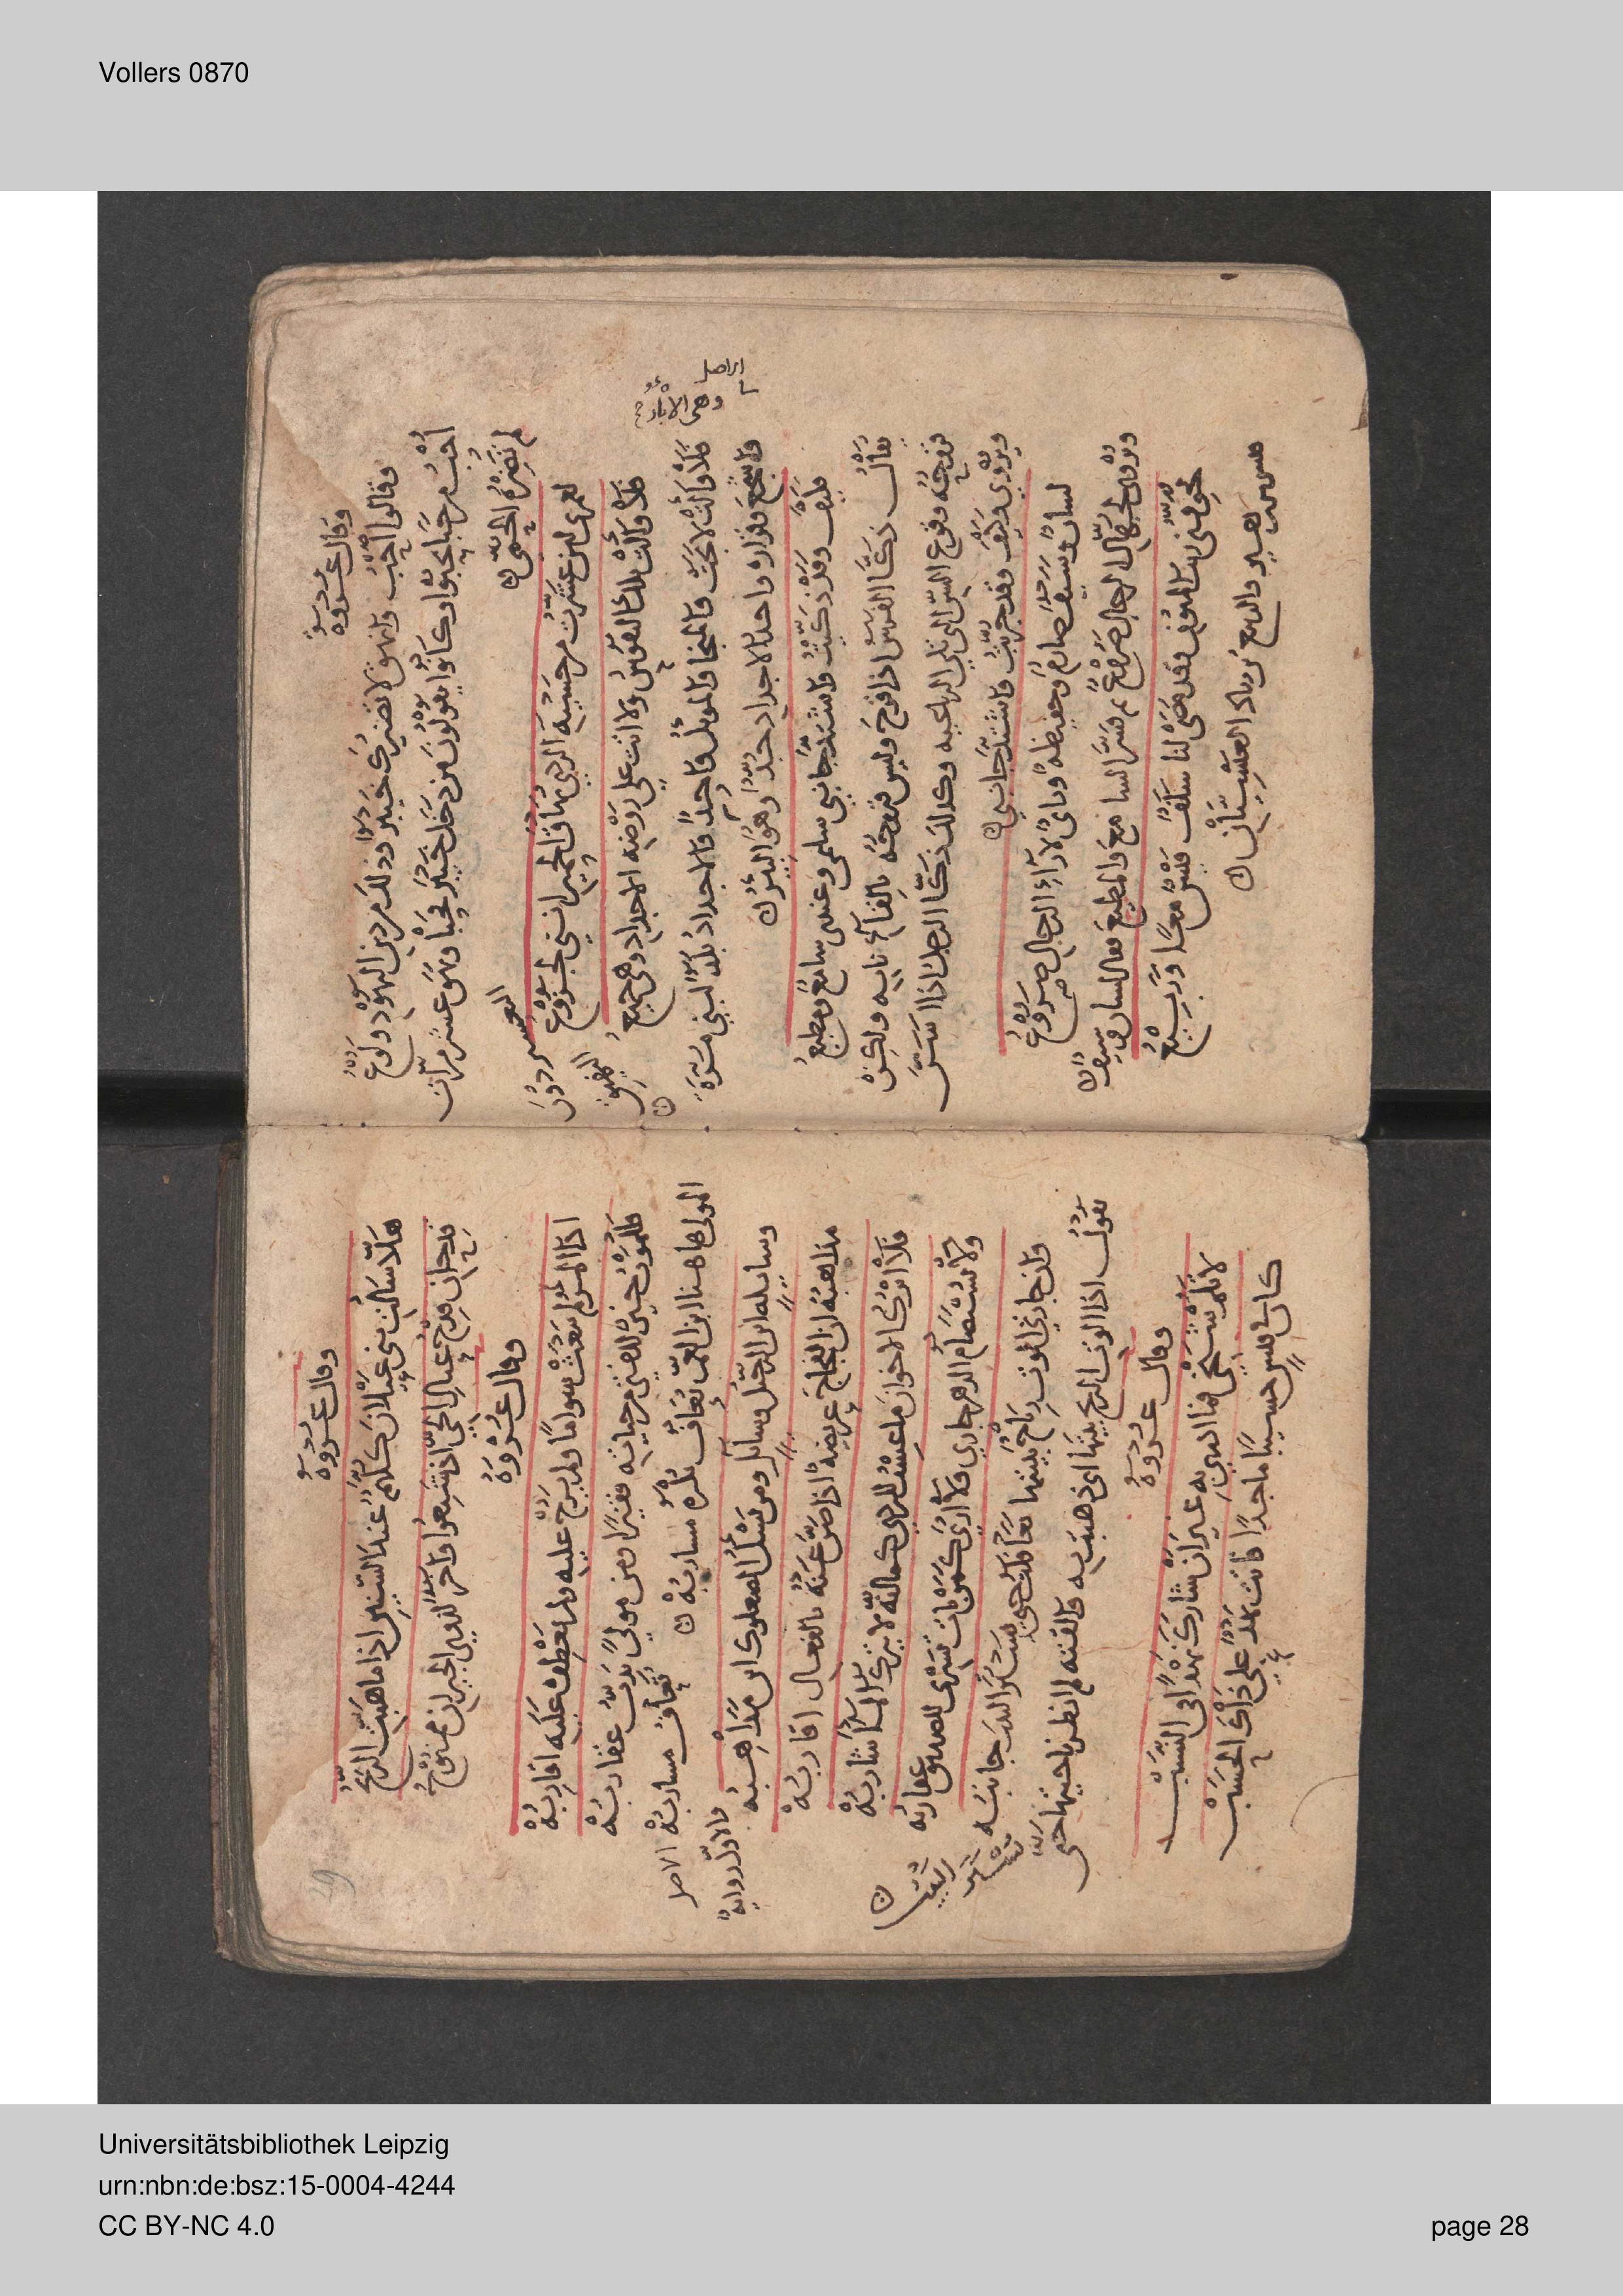 Vollers 0870
وقال عروة
وقالوا أحب وانهق لا تضيرك خيبر وذلك من دين اليهود ولوع
أحب من حبا يحبوا وكانوا يقولون من دخل خيبر فحبا ونهق عشر مرات
لم تضره الحمى
لعمري لئن عشرت من خشية الردى نهاق الحمير انني لجزوع
فلا وألت تلك النفوس ولا اتت على روضة الاجداد وهي جميع
فلا وألت لا نجت والمنجا والموئل واحد والاجداد بلد لبني مرة
واشجع وفزارة واحد الاجداد جد وهو البئر
وهي الابار
فكيف وقد ذكيت واشتد جانبي سليمى وعندي سامع ومطيع
يقال ذكا الفرس اذا قرح وليس قروحه بالقاء نابه ولكن
قروحه وقوع السن التي تلي الرباعية وكذلك ذكا الرجل اذا اسن
ويروى وكيف وقد جربت واشتد جانبي
لسان وسيف صارم وحفيظة وراي لاراء الرجال صروع
ويروى لجهال الرجال صروع ثم فسر السامع والمطيع فقال لسان وسيف
تخوفني ريب المنون وقد مضى لنا سلف قيس معا وربيع
قيس بن زهير والربيع بن زياد العبسيان
وقال عروة
هلا سالت بني عيلان كلهم عند السنين اذا ما هبت الريح
قد حان قدح عيال الحي اذ شبعوا واخر لذوي الجيران ممنوح
وقال عروة
اذا المرء لم يبعث سواما ولم يرح عليه ولم تعطف عليه اقاربه
فللموت خير للفتى من حياته فقيرا ومن مولى تدب عقاربه
المولى هاهنا ابن العم تعاف تكره مساربه
وسائلة اين الرحيل وسائل ومن يسئل الصعلوك اين مذاهبه
مذاهبه ان الفجاج عريضة اذا ضن عنه بالفعال اقاربه
فلا اترك الاخوان ما عشت للردى كما انه لا يترك الماء شاربه
ولا يستضام الدهر جاري ولا ارى كمن بات تسري للصديق عقاربه
وان جارتي الوت رياح ببيتها تغافلت حتى يستر البيت جانبه
يقول اذا الوت الريح ببيتها اي ذهبت به والقته لم انظر ناحيتها حتى
وقال عروة
لا تلم شيخي فما ادري به غير ان شارك نهدا في النسب
كان في قيس حسيبا ماجدا فاتت نهد على ذاك الحسب
Universitätsbibliothek Leipzig
urn:nbn:de:bsz:15-0004-4244
CC BY-NC 4.0
page 28